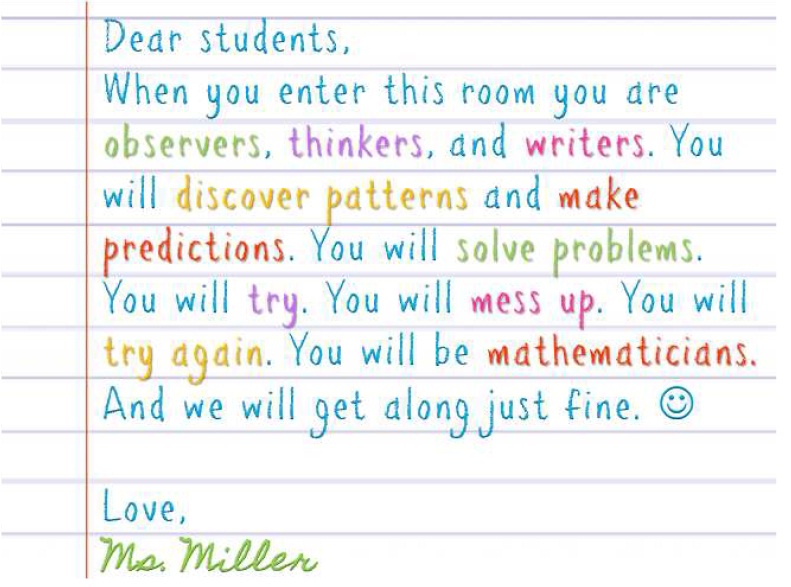 Dear students,
When you enter this room you are
observers, thinkers, and writers. You
will discover patterns and make
predictions. You will solve problems.
You will try. You will mess up. You will
try again. You will be mathematicians.
And we will get along just fine. ☺
Love,
Ms. Miller